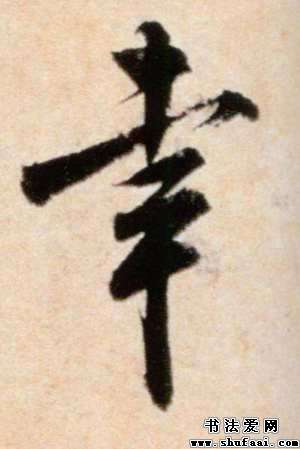 幸
书法爱网
www.shufaai.com